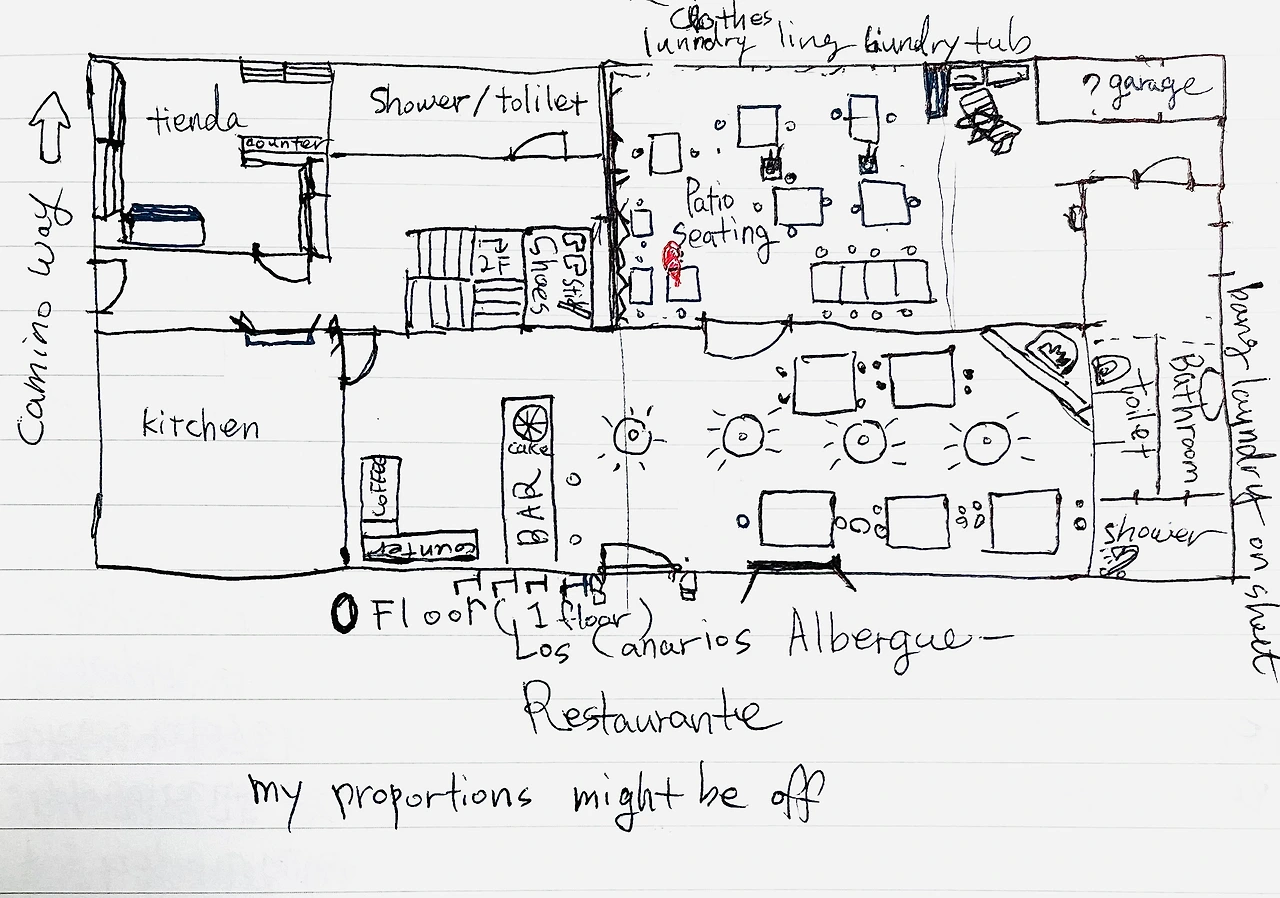 Clothes
lunndry ling laundry tub
? garage
tienda
Shower/tolilet
counter
Camino way
Patio
seating
2F
Shoes
Stick
kitchen
cake
BAR
COFFEE
counter
toilet
Bathroom
shower
hang laundry on sheet
0 Floor (1 floor)
Los Canarios Albergue—
Restaurante
my proportions might be off